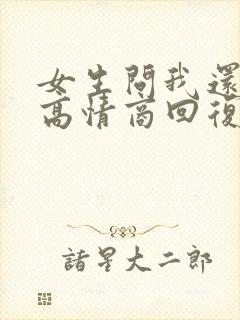 女生問我還
高情商回復
諸星大二郎